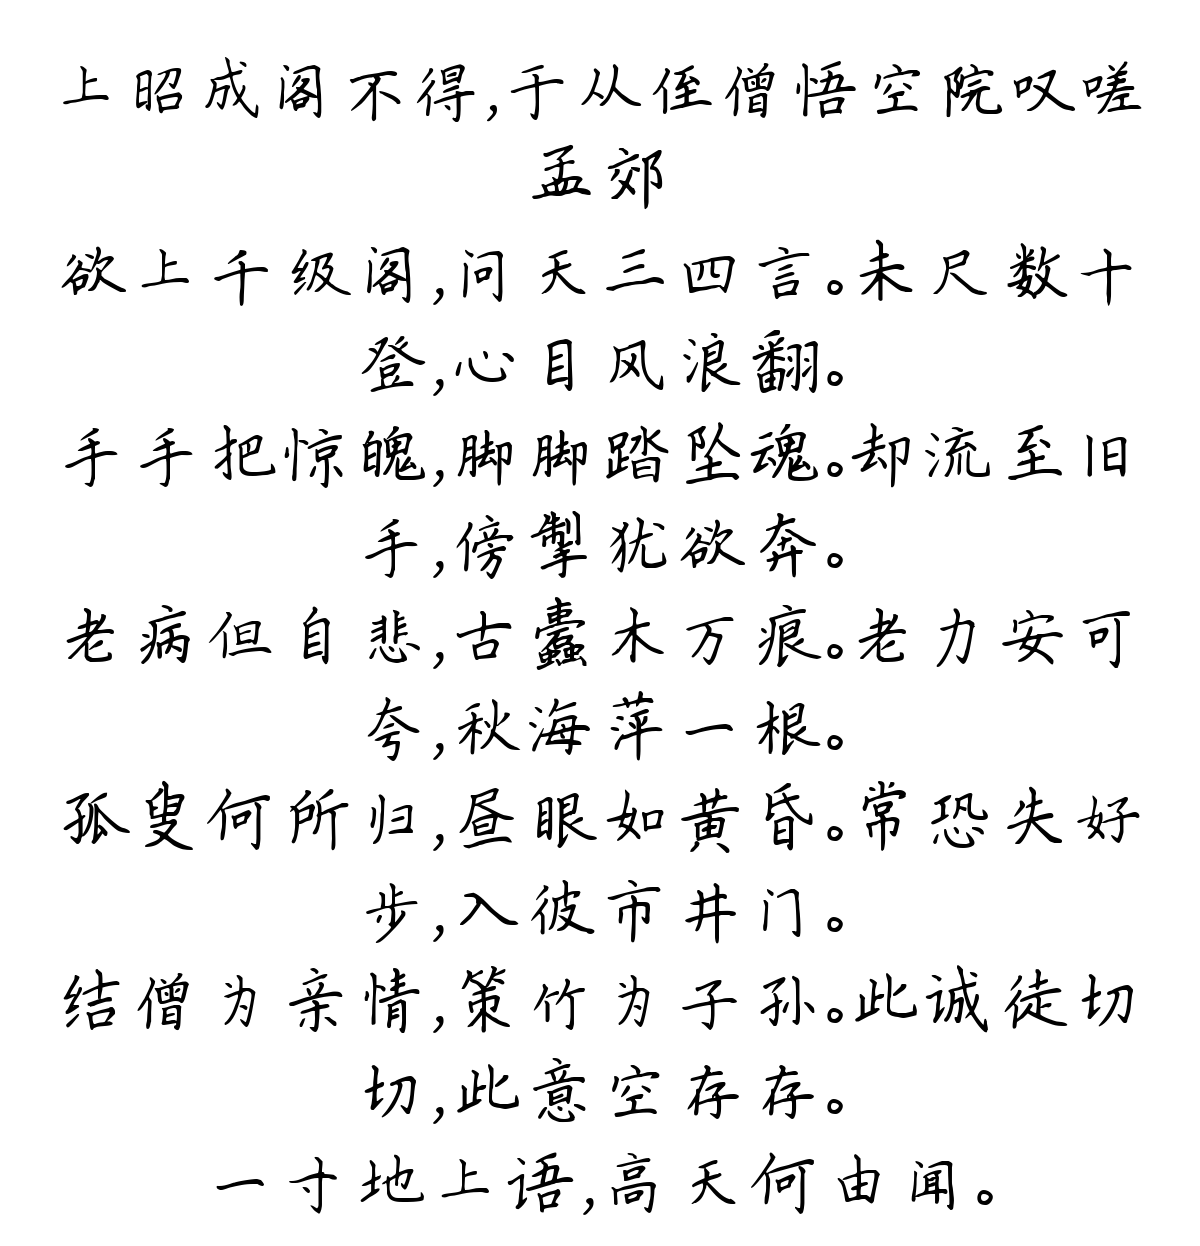 上昭成阁不得,于从侄僧悟空院叹嗟
孟郊
欲上千级阁,问天三四言。未尺数十
登,心目风浪翻。
手手把惊魄,脚脚踏坠魂。却流至旧
手,傍掣犹欲奔。
老病但自悲,古蠹木万痕。老力安可
夸,秋海萍一根。
孤叟何所归,昼眼如黄昏。常恐失好
步,入彼市井门。
结僧为亲情,策竹为子孙。此诚徒切
切,此意空存存。
一寸地上语,高天何由闻。